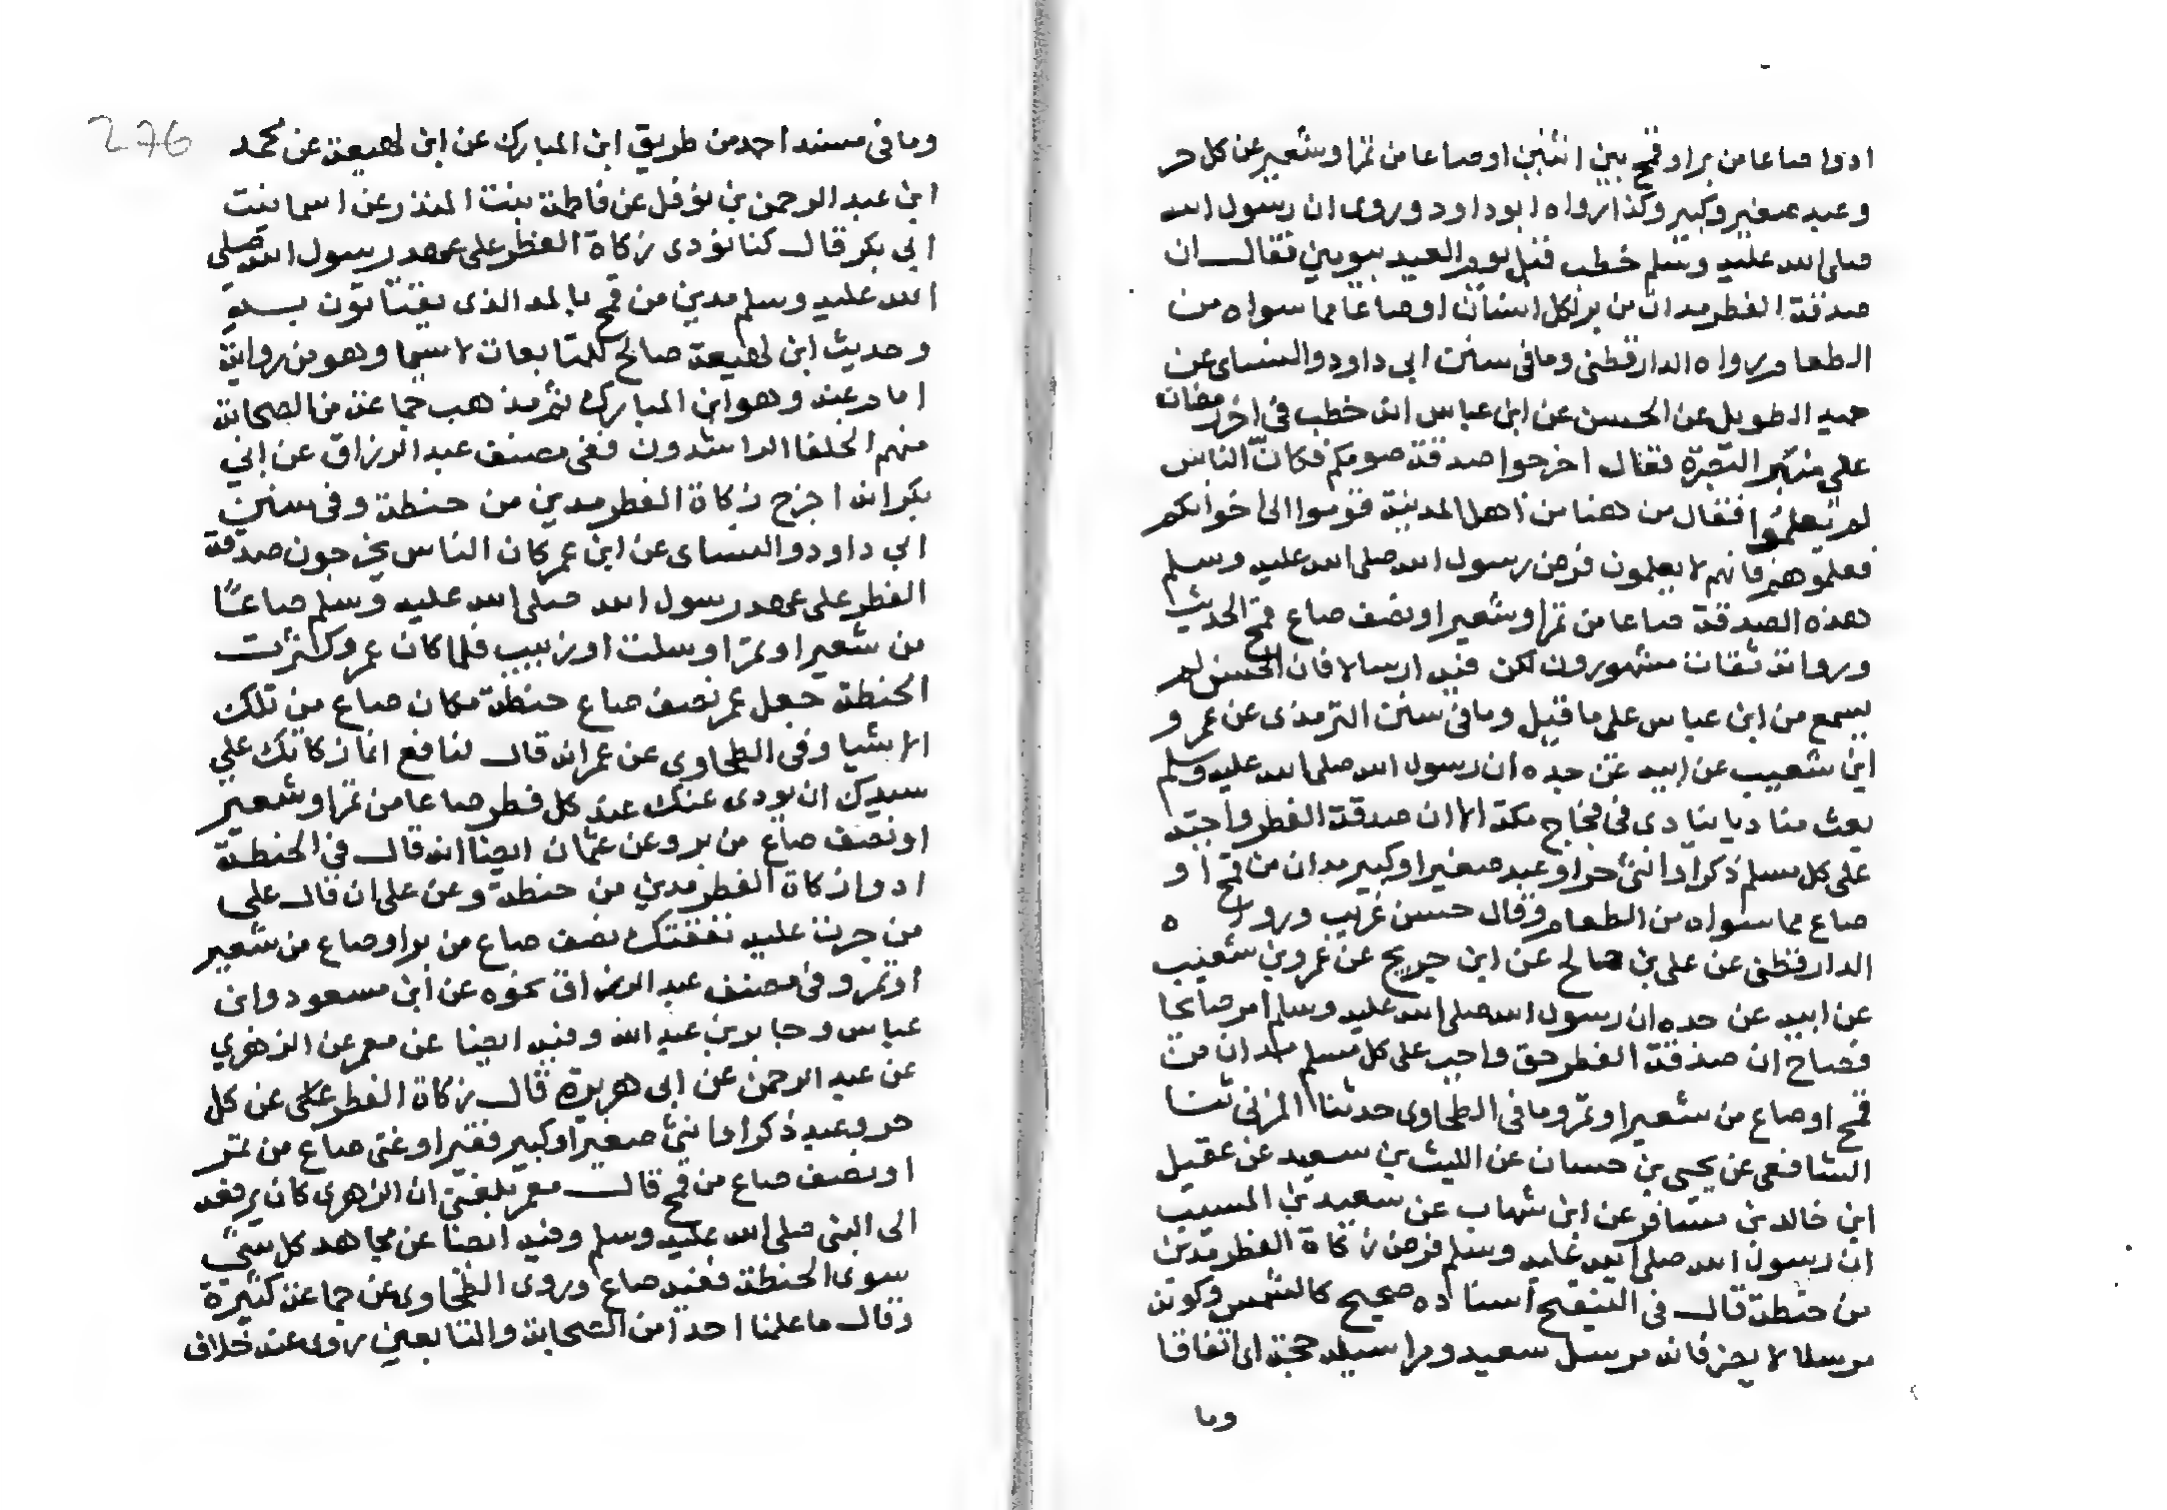 ادوا صاعا من بر او قمح بين اثنين او صاعا من تمر او شعير عن كل حر
وعبد صغير وكبير وكذا رواه ابو داود وروى ان رسول الله
صلى الله عليه وسلم خطب قبل يوم العيد بيومين فقال ان
صدقة الفطر مدان من بر لكل انسان او صاعا مما سواه من
الطعام رواه الدارقطنى وما فى سنن ابى داود والنسائ عن
حميد الطويل عن الحسن عن ابن عباس انه خطب فى اخر رمضان
على منبر البصرة فقال اخرجوا صدقة صومكم فكان الناس
لم يعلموا فقال من ههنا من اهل المدينة قوموا الى اخوانكم
فعلموهم فانهم لا يعلمون فرض رسول الله صلى الله عليه وسلم
هذه الصدقة صاعا من تمر او شعير او نصف صاع قمح الحديث
ورواته ثقات مشهورون لكن فيه ارسالا فان الحسن لم
يسمع من ابن عباس على ما قيل وما فى سنن الترمذى عن عمرو
ابن شعيب عن ابيه عن جده ان رسول الله صلى الله عليه وسلم
بعث مناديا ينادى فى فجاج مكة الا ان صدقة الفطر واجبة
على كل مسلم ذكر او انثى حر او عبد صغير او كبير مدان من قمح او
صاع مما سواه من الطعام وقال حسن غريب ورواه
الدارقطنى عن على بن صالح عن ابن جريج عن عمرو بن شعيب
عن ابيه عن جده ان رسول الله صلى الله عليه وسلم امر صائحا
فصاح ان صدقة الفطر حق واجب على كل مسلم مدان من
قمح او صاع من شعير او تمر وما فى الطحاوى حدثنا المزنى ثنا
الشافعى عن يحيى بن حسان عن الليث بن سعيد عن عقيل
ابن خالد بن مسافر عن ابن شهاب عن سعيد بن المسيب
ان رسول الله صلى الله عليه وسلم فرض زكاة الفطر مدين
من حنطة قال فى التنقيح اسناده صحيح كالشمس وكونه
مرسلا لا يضر فانه مرسل سعيد ومراسيله حجة اى اتفاقا
وما
276
وما فى مسند احمد من طريق ابن المبارك عن ابن لهيعة عن محمد
ابن عبد الرحمن بن نوفل عن فاطمة بنت المنذر عن اسما بنت
ابى بكر قال كنا نؤدى زكاة الفطر على عهد رسول الله صلى
الله عليه وسلم مدين من قمح بالمد الذى يقتاتون به
وحديث ابن لهيعة صالح للمتابعات لا سيما وهو من رواية
امام عنه وهو ابن المبارك ثم مذهب جماعة من الصحابة
منهم الخلفا الراشدون ففى مصنف عبد الرزاق عن ابي
بكر انه اخرج زكاة الفطر مدين من حنطة وفى سنن
ابي داود والنسائ عن ابن عمر كان الناس يخرجون صدقة
الفطر على عهد رسول الله صلى الله عليه وسلم صاعا
من شعير او تمر او سلت او زبيب فلما كان عمر وكثرت
الحنطة جعل عمر نصف صاع حنطة مكان صاع من تلك
الاشيا وفى الطحاوى عن عمر انه قال لنافع انما زكاتك علي
سيدك ان يودى عنك عند كل فطر صاعا من تمر او شعير
او نصف صاع من بر وعن عثمان ايضا انه قال في الحنطة
ادوا زكاة الفطر مدين من حنطة وعن على ان قال على
من جرت عليه نفقتك نصف صاع من بر او صاع من شعير
او تمر وفى مصنف عبد الرزاق نحوه عن ابن مسعود وابن
عباس وجابر بن عبد الله وفيه ايضا عن معمر عن الزهري
عن عبد الرحمن عن ابى هريرة قال زكاة الفطر على عن كل
حر وعبد ذكر او انثى صغير او كبير فقير او غنى صاع من تمر
او نصف صاع من قمح قال معمر بلغنى ان الزهرى كان يرفعه
الى النبى صلى الله عليه وسلم وفيه ايضا عن مجاهد كل شئ
سوى الحنطة ففيه صاع وروى الطحاوى عن جماعة كثيرة
وقال ما علمنا احدا من الصحابة والتابعين روى عنه خلاف